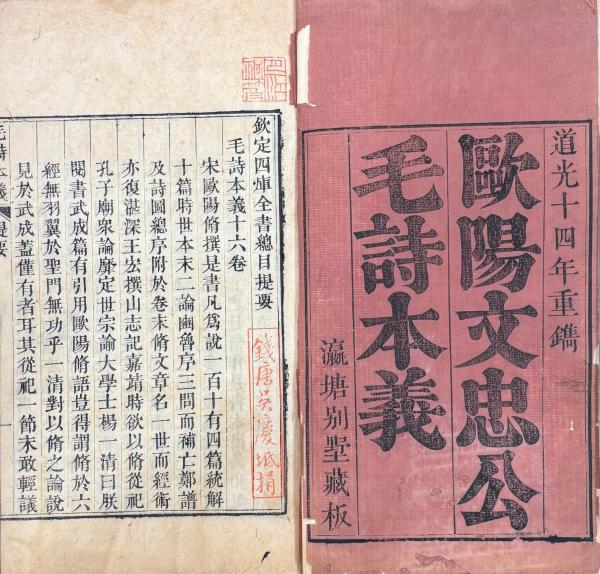 道光十四年重鐫
歐陽文忠公
毛詩本義
瀛塘別墅藏板
欽定四庫全書總目提要
毛詩本義十六卷
宋歐陽脩撰是書凡為說一百十有四篇統解
十篇時世本末二論豳魯序三問而補亡鄭譜
及詩圖總序附於卷末脩文章名一世而經術
亦復湛深王宏撰山志記嘉靖時欲以脩從祀
孔子廟眾論靡定世宗諭大學士楊一清曰朕
閱書武成篇有引用歐陽脩語豈得謂脩於六
經無羽翼於聖門無功乎一清對以脩之論說
見於武成蓋僅有者耳其從祀一節未敢輕議
毛詩本義 提要
一
錢唐吳慶坻捐